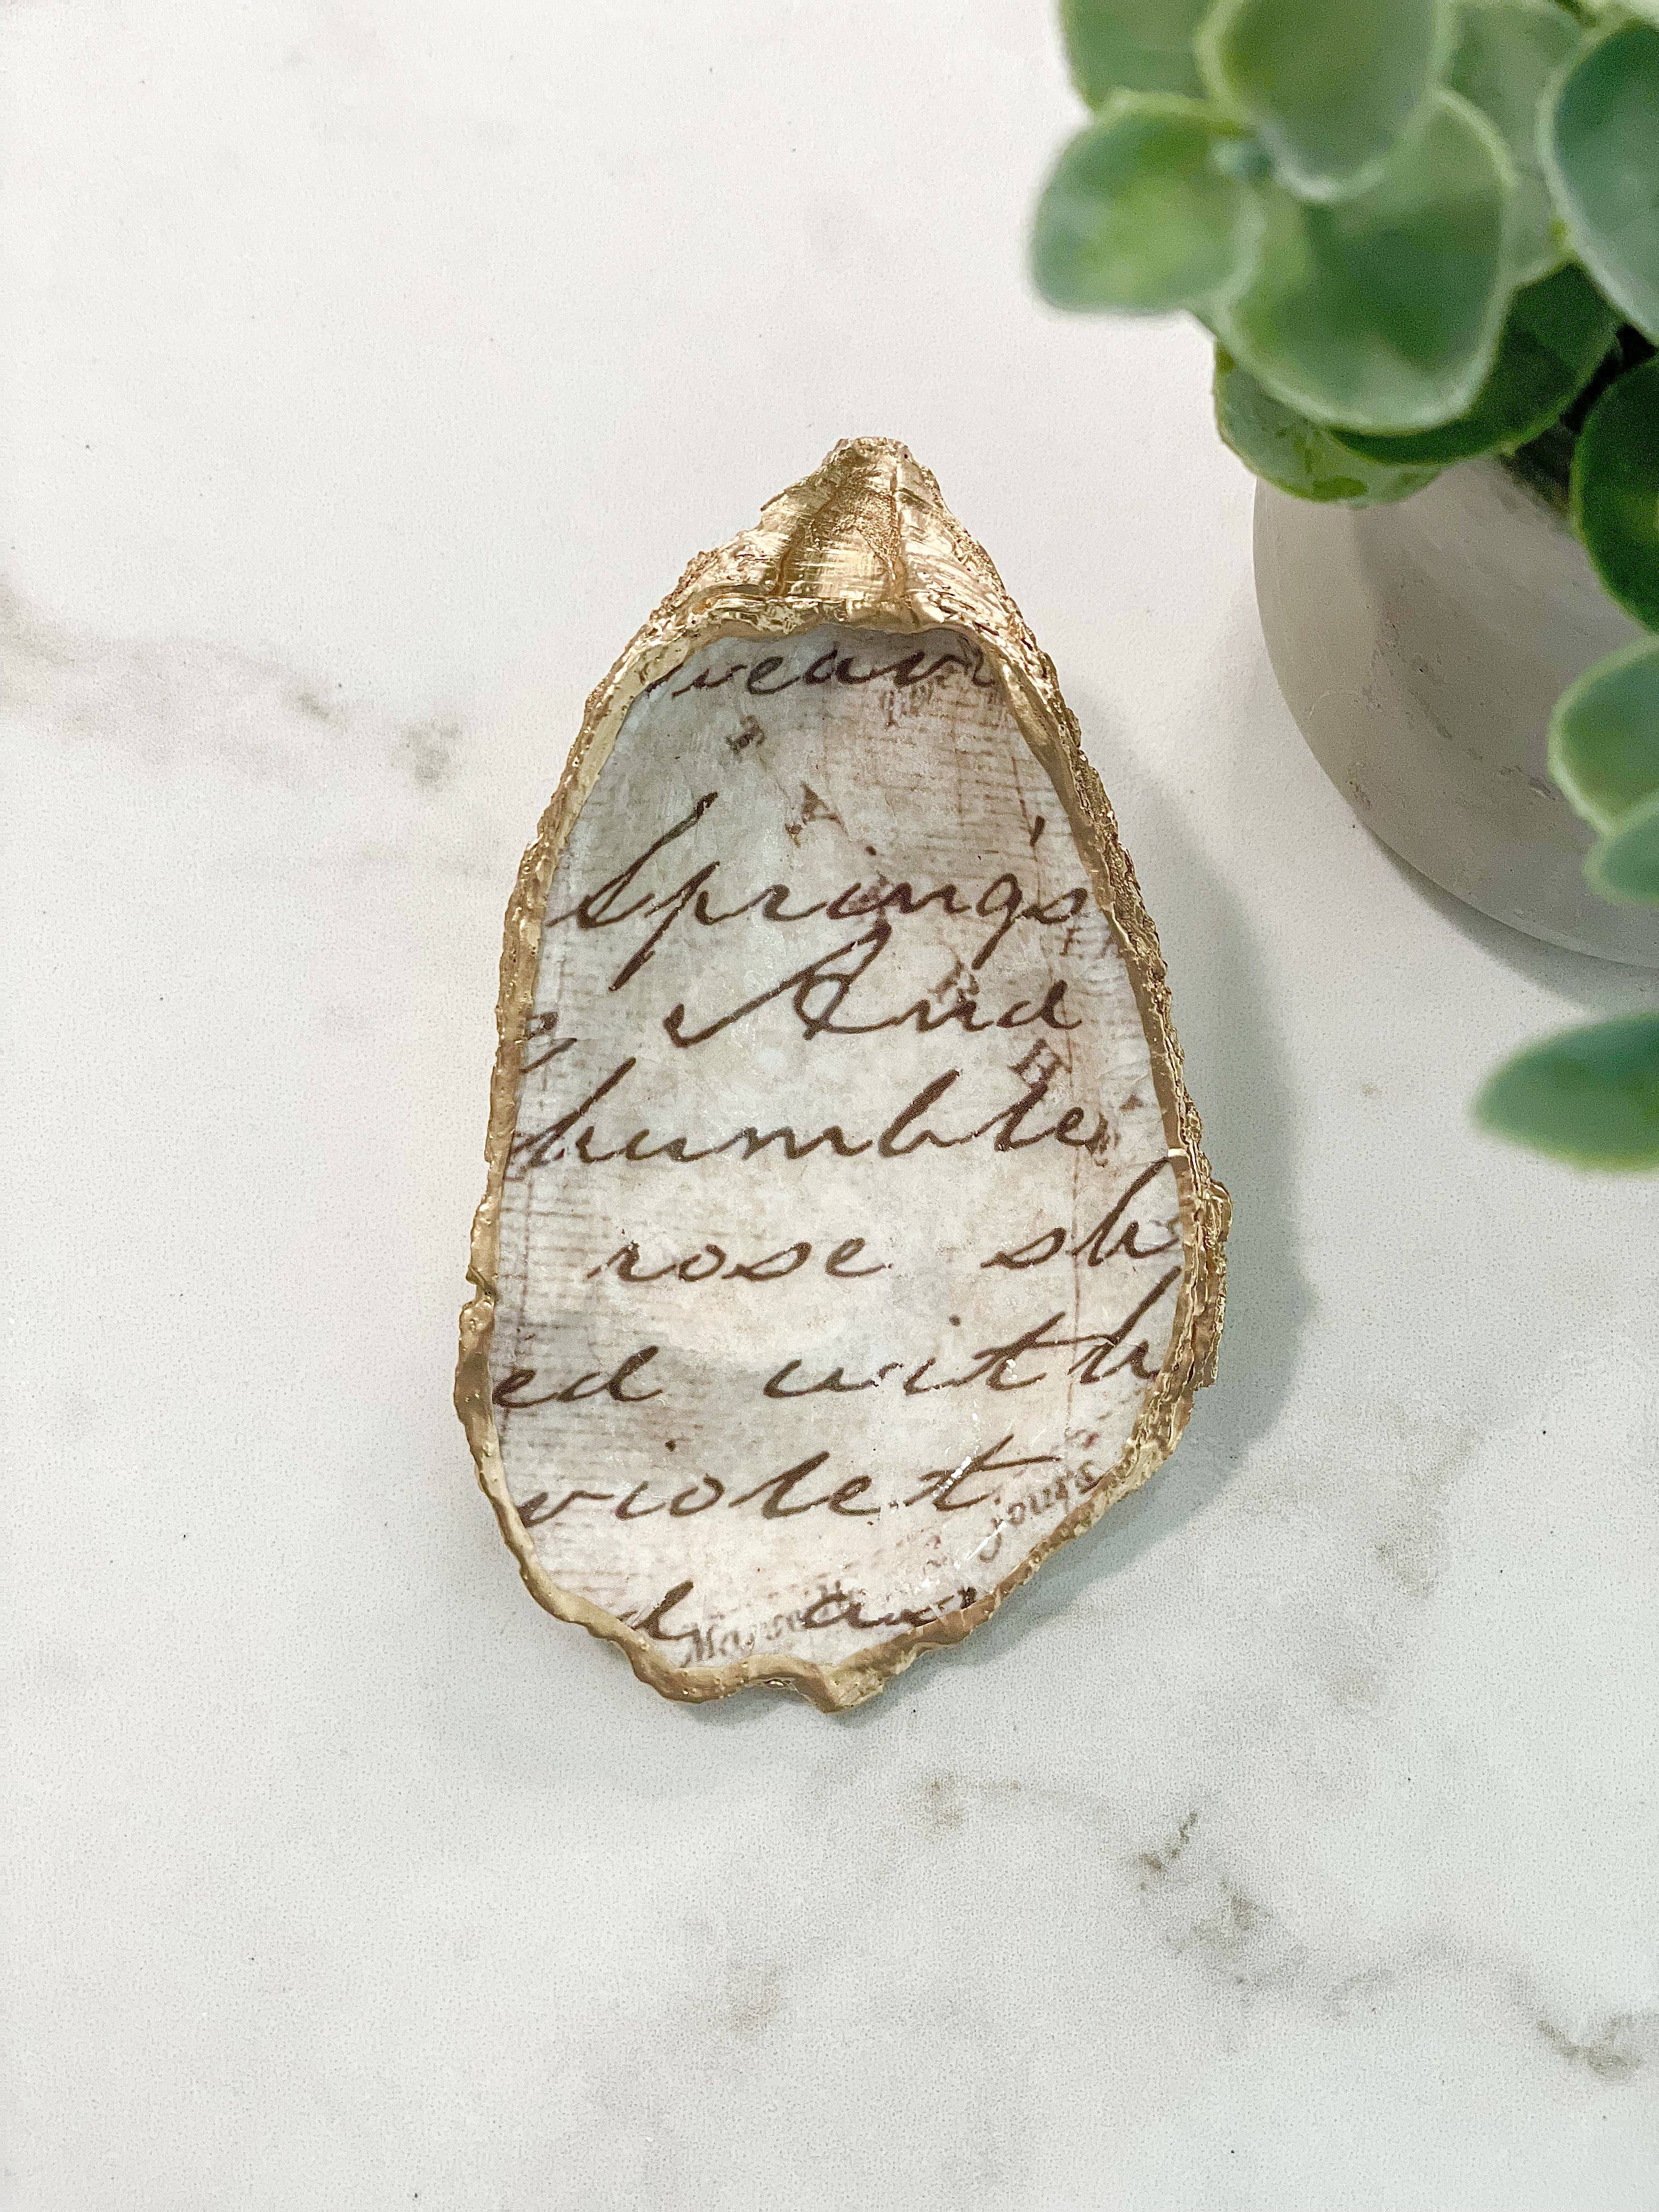 Spring's
And
humble
rose sh
ed with
violet